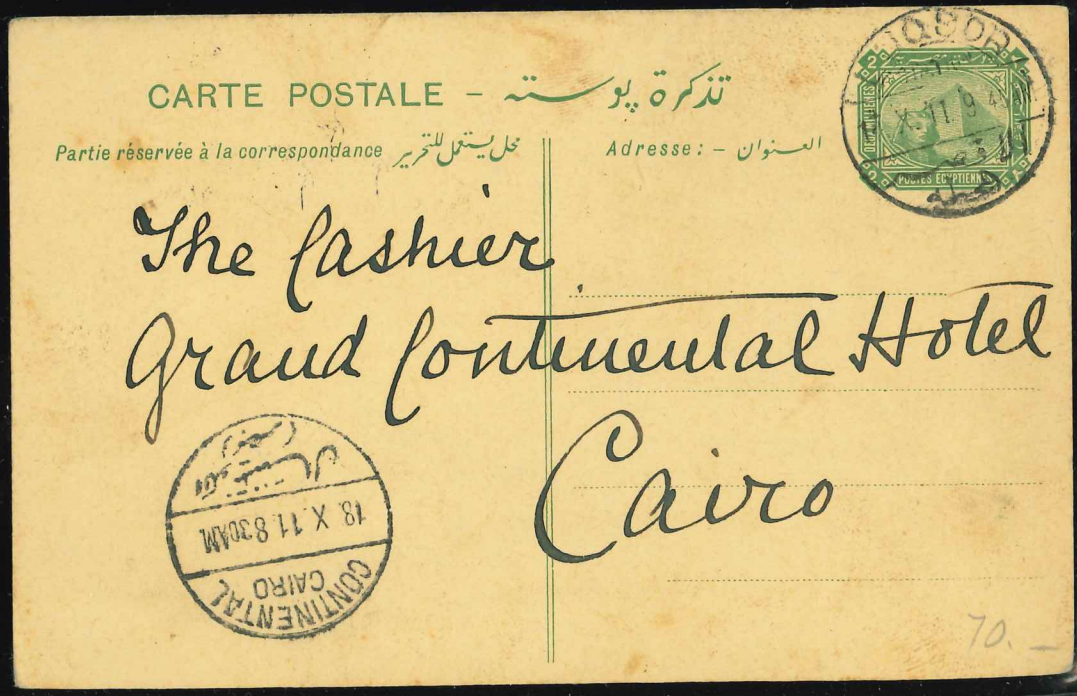 CARTE POSTALE – تذكرة پوستـه
Partie réservée à la correspondance محل يستعمل للتحرير
Adresse: – العـنوان
LUQSOR
X. 11 9
2
POSTES EGYPTIENNES
The Cashier
Grand Continental Hotel
Cairo
18. X. 11. 8 30AM
CONTINENTAL
CAIRO
70. –